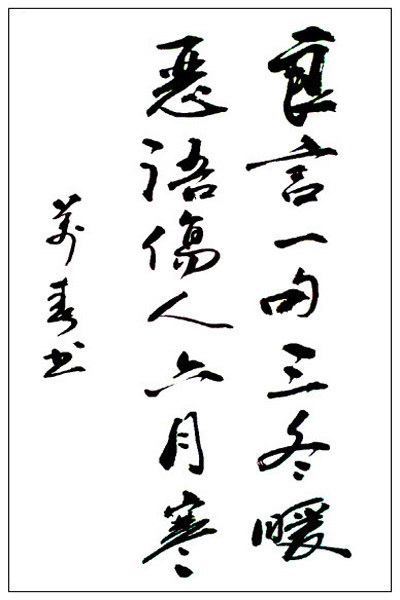 良言一句三冬暖
惡語傷人六月寒
书